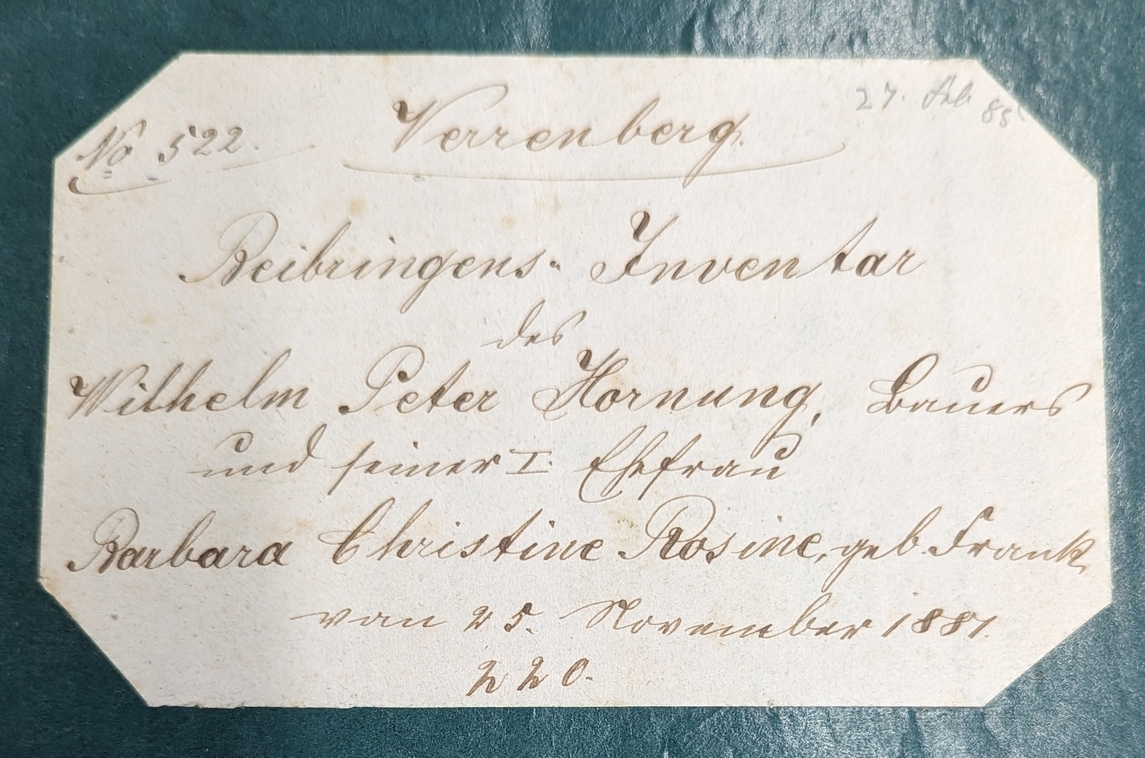 No 522.
Verrenberg.
27. Feb 85
Beibringens-Inventar
des
Wilhelm Peter Hornung, Bauers
und seiner I. Ehefrau
Barbara Christine Rosine, geb. Frank,
vom 25. November 1881.
220.